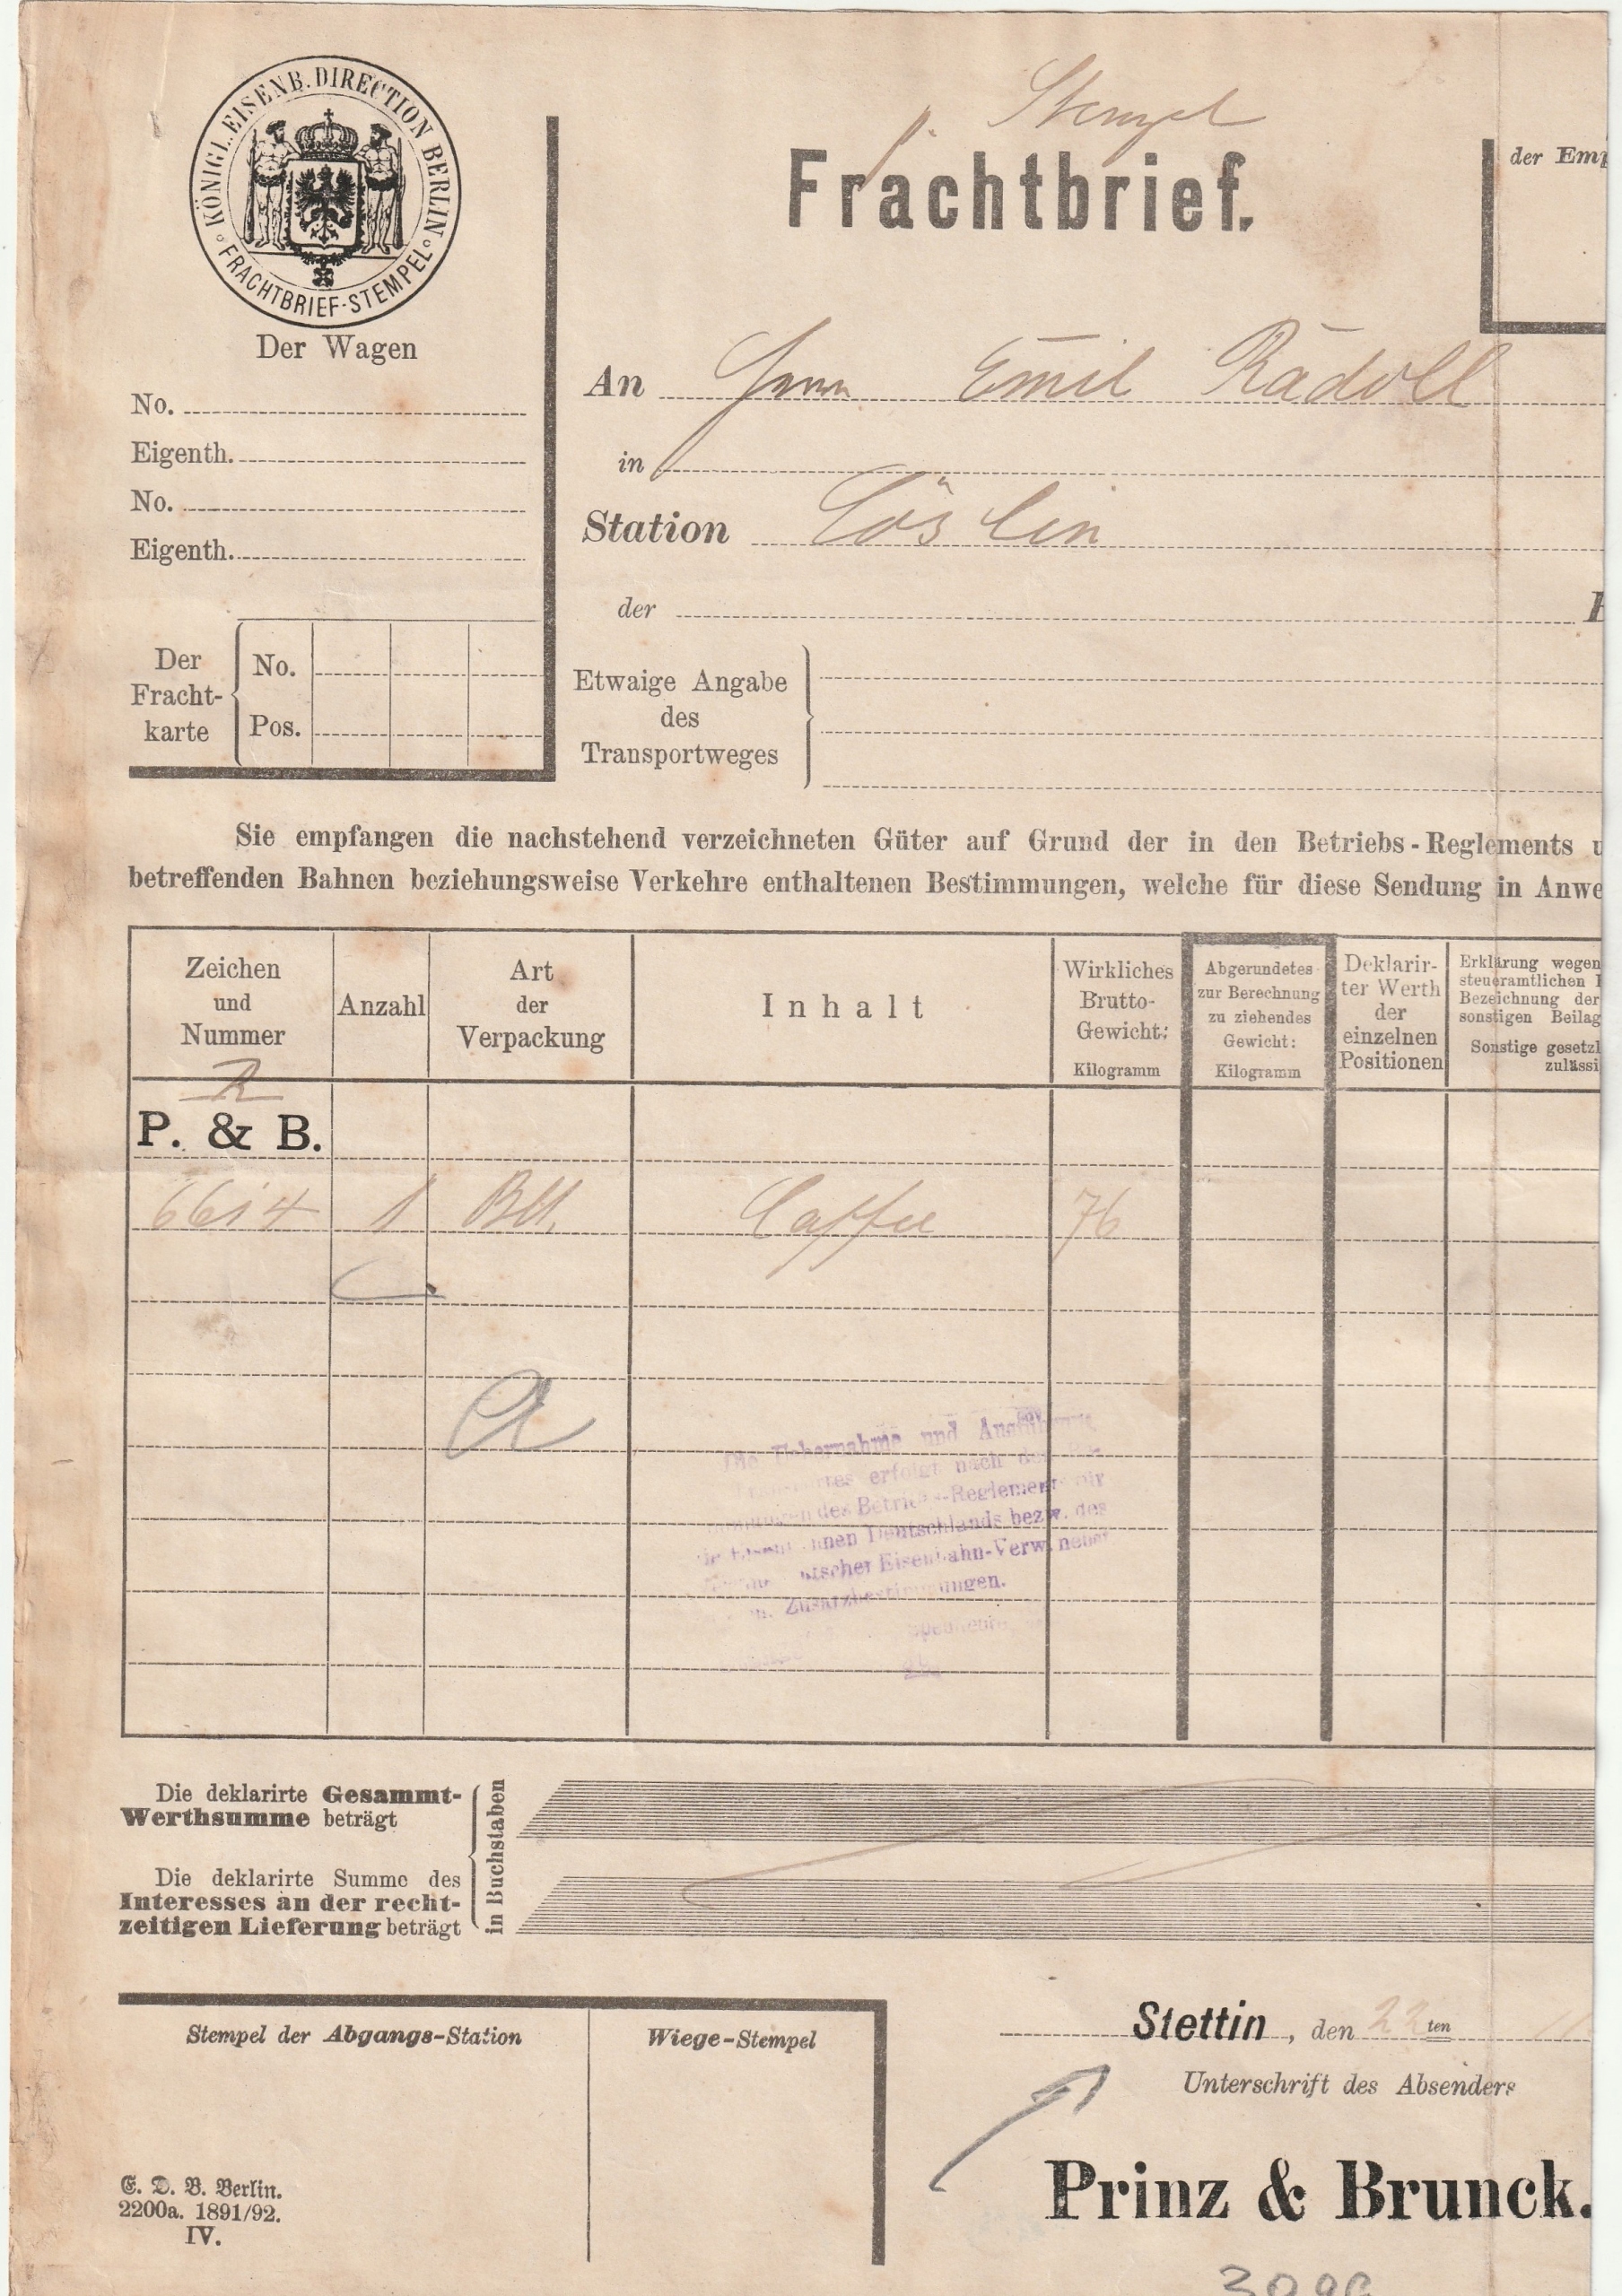 KÖNIGL. EISENB. DIRECTION BERLIN
FRACHTBRIEF-STEMPEL
Der Wagen
No.
Eigenth.
No.
Eigenth.
Der Fracht-karte
No.
Pos.
Frachtbrief.
der Emp
An Herrn Emil Radoll
in
Station Cöslin
der
Etwaige Angabe
des
Transportweges
Sie empfangen die nachstehend verzeichneten Güter auf Grund der in den Betriebs-Reglements u
betreffenden Bahnen beziehungsweise Verkehre enthaltenen Bestimmungen, welche für diese Sendung in Anwe
Zeichen
und
Nummer
Anzahl
Art
der
Verpackung
Inhalt
Wirkliches
Brutto-
Gewicht:
Kilogramm
Abgerundetes
zur Berechnung
zu ziehendes
Gewicht:
Kilogramm
Deklarir-
ter Werth
der
einzelnen
Positionen
Erklärung wegen
steueramtlichen
Bezeichnung der
sonstigen Beilag
Sonstige gesetzl
zulässi
P. & B.
6614 1 Bll. Caffee 76
Die Uebernahme und Ausführung
erfolgt nach
des Betriebs-Reglements
Deutschlands bezw. des
Eisenbahn-Verw.
Zusatzbestimmungen.
Die deklarirte Gesammt-
Werthsumme beträgt
Die deklarirte Summe des
Interesses an der recht-
zeitigen Lieferung beträgt
in Buchstaben
Stempel der Abgangs-Station
Wiege-Stempel
Stettin, den 22ten 11
Unterschrift des Absenders
Prinz & Brunck.
E. D. B. Berlin.
2200a. 1891/92.
IV.